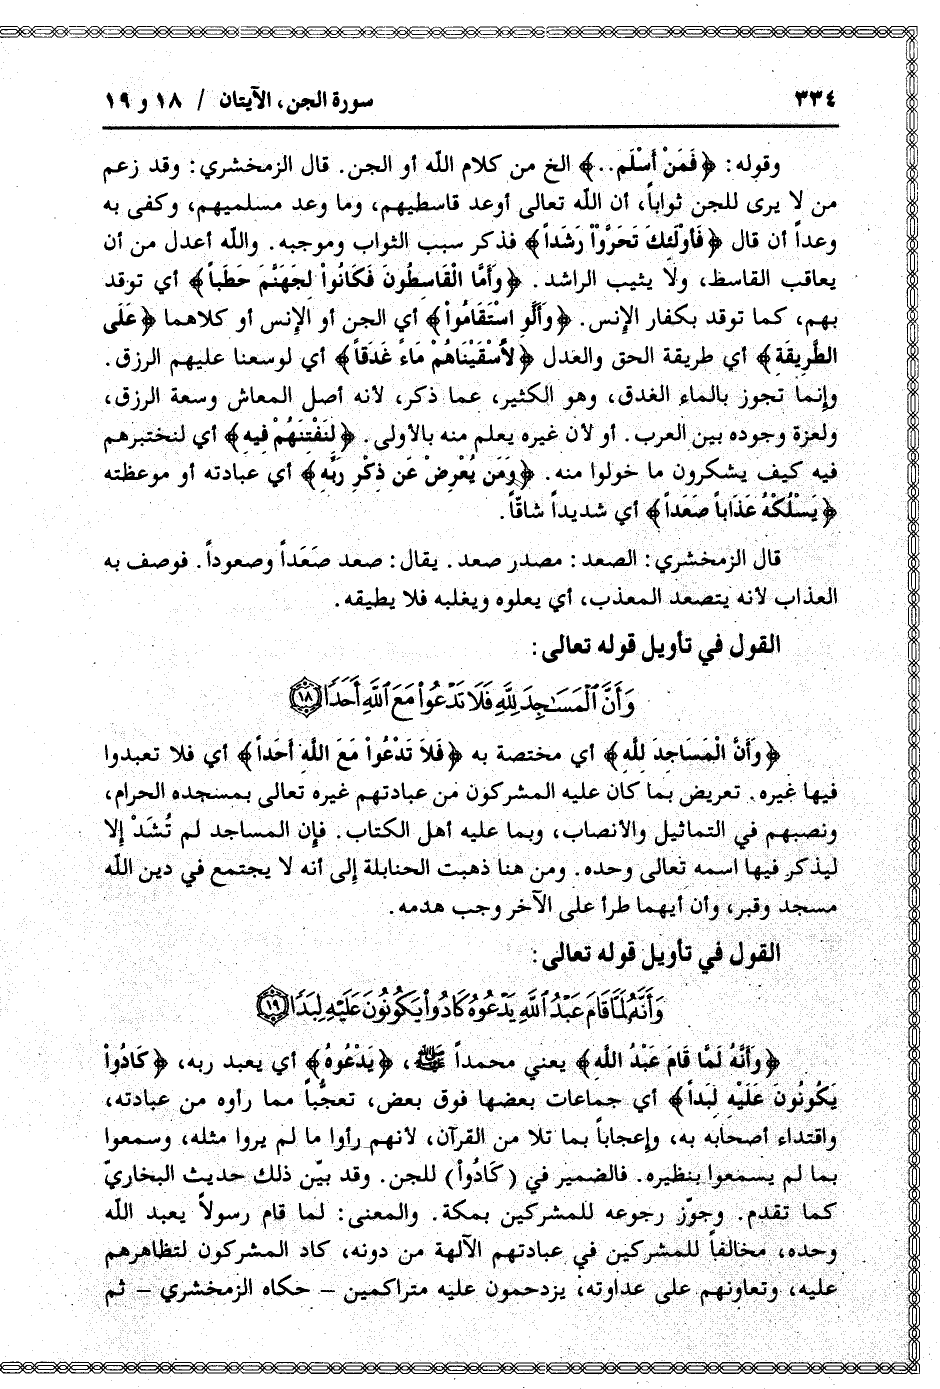 ٣٣٤ سورة الجن، الآيتان / ١٨ و ١٩
وقوله: ﴿فَمَنْ أَسْلَم..﴾ الخ من كلام اللّه أو الجن. قال الزمخشري: وقد زعم
من لا يرى للجن ثواباً، أن اللّه تعالى أوعد قاسطيهم، وما وعد مسلميهم، وكفى به
وعداً أن قال ﴿فَأوْلَئِكَ تَحَرَّوْاْ رَشَداً﴾ فذكر سبب الثواب وموجبه. واللّه أعدل من أن
يعاقب القاسط، ولا يثيب الراشد. ﴿وَأَمَّا الْقَاسِطُونَ فَكَانُواْ لِجَهَنَّمَ حَطَباً﴾ أي توقد
بهم، كما توقد بكفار الإنس. ﴿وَأَلَّو اسْتَقَامُواْ﴾ أي الجن أو الإنس أو كلاهما ﴿عَلَى
الطَّرِيقَةِ﴾ أي طريقة الحق والعدل ﴿لأَسْقَيْنَاهُمْ مَاءً غَدَقاً﴾ أي لوسعنا عليهم الرزق.
وإنما تجوز بالماء الغدق، وهو الكثير، عما ذكر، لأنه أصل المعاش وسعة الرزق،
ولعزة وجوده بين العرب. أو لأن غيره يعلم منه بالأولى. ﴿لِنَفْتِنَهُمْ فِيهِ﴾ أي لنختبرهم
فيه كيف يشكرون ما خولوا منه. ﴿وَمَن يُعْرِضْ عَن ذِكْرِ رَبِّهِ﴾ أي عبادته أو موعظته
﴿يَسْلُكْهُ عَذَاباً صَعَداً﴾ أي شديداً شاقّاً.
قال الزمخشري: الصعد: مصدر صعد. يقال: صعد صَعَداً وصعوداً. فوصف به
العذاب لأنه يتصعد المعذب، أي يعلوه ويغلبه فلا يطيقه.
القول في تأويل قوله تعالى:
وَأَنَّ ٱلْمَسَٰجِدَ لِلَّهِ فَلَا تَدْعُوا۟ مَعَ ٱللَّهِ أَحَدًا ١٨
﴿وَأَنَّ الْمَسَاجِدَ لِلَّهِ﴾ أي مختصة به ﴿فَلاَ تَدْعُواْ مَعَ اللَّهِ أَحَداً﴾ أي فلا تعبدوا
فيها غيره. تعريض بما كان عليه المشركون من عبادتهم غيره تعالى بمسجده الحرام،
ونصبهم في التماثيل والأنصاب، وبما عليه أهل الكتاب. فإن المساجد لم تُشَدْ إلا
ليذكر فيها اسمه تعالى وحده. ومن هنا ذهبت الحنابلة إلى أنه لا يجتمع في دين اللّه
مسجد وقبر، وأن أيهما طرأ على الآخر وجب هدمه.
القول في تأويل قوله تعالى:
وَأَنَّهُۥ لَمَّا قَامَ عَبْدُ ٱللَّهِ يَدْعُوهُ كَادُوا۟ يَكُونُونَ عَلَيْهِ لِبَدًا ١٩
﴿وَأَنَّهُ لَمَّا قَامَ عَبْدُ اللَّهِ﴾ يعني محمداً ﷺ، ﴿يَدْعُوهُ﴾ أي يعبد ربه، ﴿كَادُواْ
يَكُونُونَ عَلَيْهِ لِبَداً﴾ أي جماعات بعضها فوق بعض، تعجّباً مما رأوه من عبادته،
واقتداء أصحابه به، وإعجاباً بما تلا من القرآن، لأنهم رأوا ما لم يروا مثله، وسمعوا
بما لم يسمعوا بنظيره. فالضمير في (كَادُواْ) للجن. وقد بيّن ذلك حديث البخاريّ
كما تقدم. وجوّز رجوعه للمشركين بمكة. والمعنى: لما قام رسولاً يعبد اللّه
وحده، مخالفاً للمشركين في عبادتهم الآلهة من دونه، كاد المشركون لتظاهرهم
عليه، وتعاونهم على عداوته، يزدحمون عليه متراكمين – حكاه الزمخشري – ثم